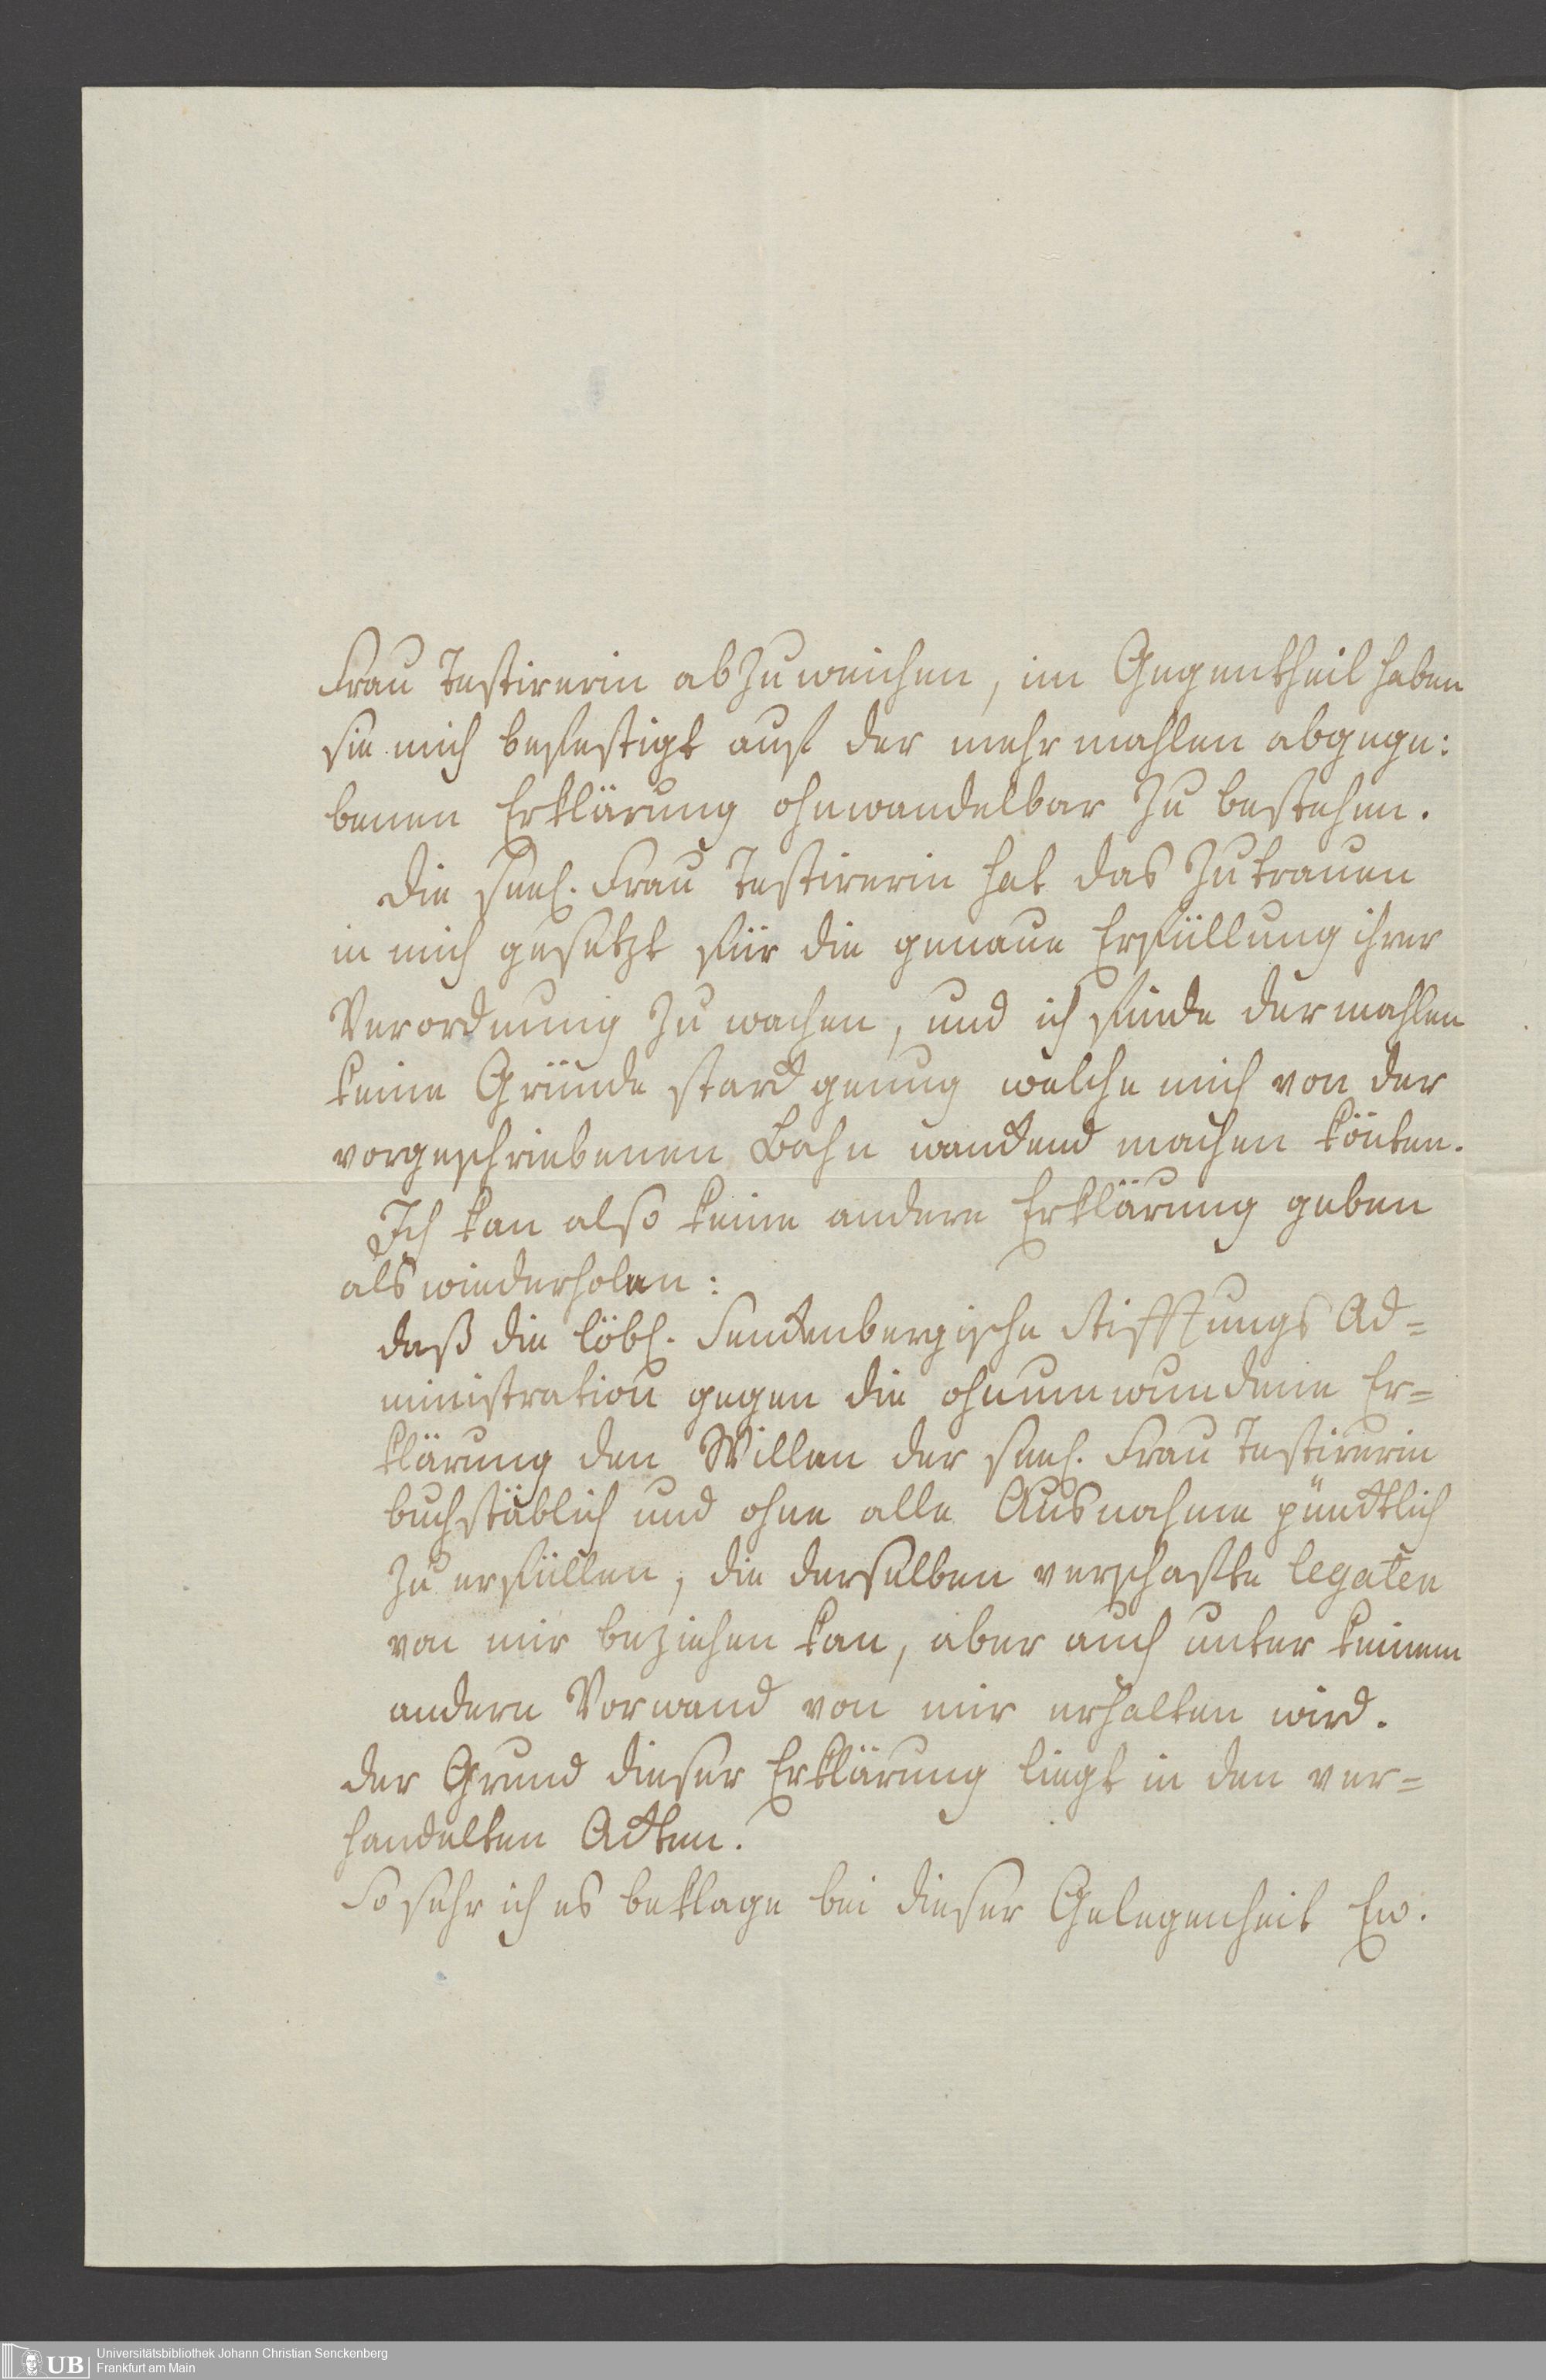 Frau Testirerin abzuweichen, im Gegentheil haben
sie mich befestigt auf der mehrmahlen abgege:
benen Erklärung ohnwandelbar zu bestehen.
Die seel. Frau Testirerin hat das Zutrauen
in mich gesetzt für die genaue Erfüllung ihrer
Verordnung zu wachen, und ich finde dermahlen
keine Gründe starck genug welche mich von der
vorgeschriebenen Bahn wanckend machen könten.
Ich kan also keine andere Erklärung geben
als wiederholen:
daß die löbl. Senckenbergische Stifftungs Ad=
ministration gegen die ohnumwundene Er=
klärung den Willen der seel. Frau Testirerin
buchstäblich und ohne alle Ausnahme pünctlich
zu erfüllen, die derselben verschafte legaten
von mir beziehen kan, aber auch unter keinem
andern Vorwand von mir erhalten wird.
Der Grund dieser Erklärung liegt in den ver=
handelten Ackten.
So sehr ich es beklage bei dieser Gelegenheit Ew.
UB
Universitätsbibliothek Johann Christian Senckenberg
Frankfurt am Main